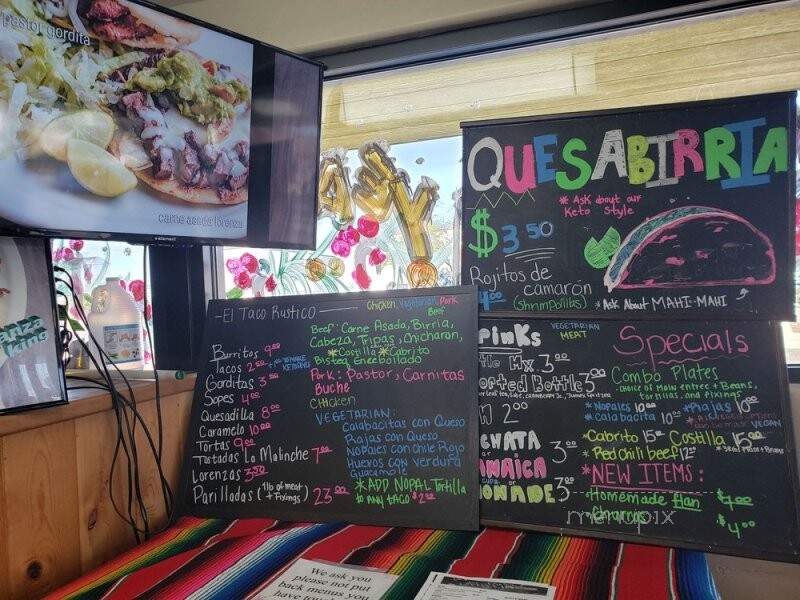 pastor gordita
carne asada lorenza
element
QUESABIRRIA
* Ask about our
Keto Style
$3.50
Rojitos de
camarón
4.00 (Shrimp Tacos)
* Ask About MAHI-MAHI
-El Taco Rustico-
Chicken, Vegetarian, Pork
Beef
Burritos 9.00
Tacos 2.00
Gorditas 3.50
Sopes 4.00
Quesadilla 8.00
Caramelo 10.00
Tortas 9.00
Tostadas La Malinche 7.00
Lorenzas 3.50
Parilladas (1lb of meat + Fixings) 23.00
Beef: Carne Asada, Birria,
Cabeza, Tripas, Chicharon,
*Costilla *Cabrito
Bistec Enchilado
Pork: Pastor, Carnitas
Buche
Chicken
VEGETARIAN:
Calabacitas con Queso
Rajas con Queso
Nopales con Chile Rojo
Huevos con Verdura
Guacamole
*ADD NOPAL Tortilla
to ANY TACO $2.00
VEGETARIAN
MEAT
Mx 3.00
Bottle 3.00
2.00
3.00
3.00
Specials
Combo Plates
Choice of Main entree + Beans,
tortillas, and Fixings
*Nopales 10.00 *Rajas 10.00
*Calabacita 10.00
VEGAN
*Cabrito 15.00 Costilla 15.00
*Red Chili beef 12.00
*NEW ITEMS:
Homemade flan $4.00
Churros $4.00
menupix
We ask you
please not put
back menus you
have